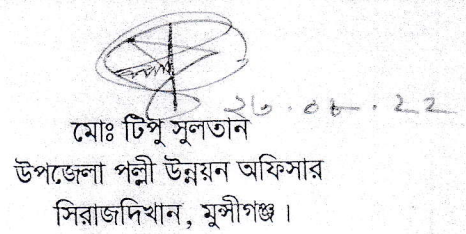 ২৩.০৮.২২
মোঃ টিপু সুলতান
উপজেলা পল্লী উন্নয়ন অফিসার
সিরাজদিখান, মুন্সীগঞ্জ।